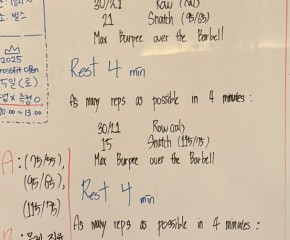 30/21 Row (cal)
21 Snatch (95/65)
Max Burpee over the Barbell
Rest 4 min
As many reps as possible in 4 minutes :
30/21 Row (cal)
15 Snatch (115/75)
Max Burpee over the Barbell
Rest 4 min
As many reps as possible in 4 minutes :
2025
5일 (토)
10:00 ~ 13:00
A : (75/55),
(95/65),
(115/75)